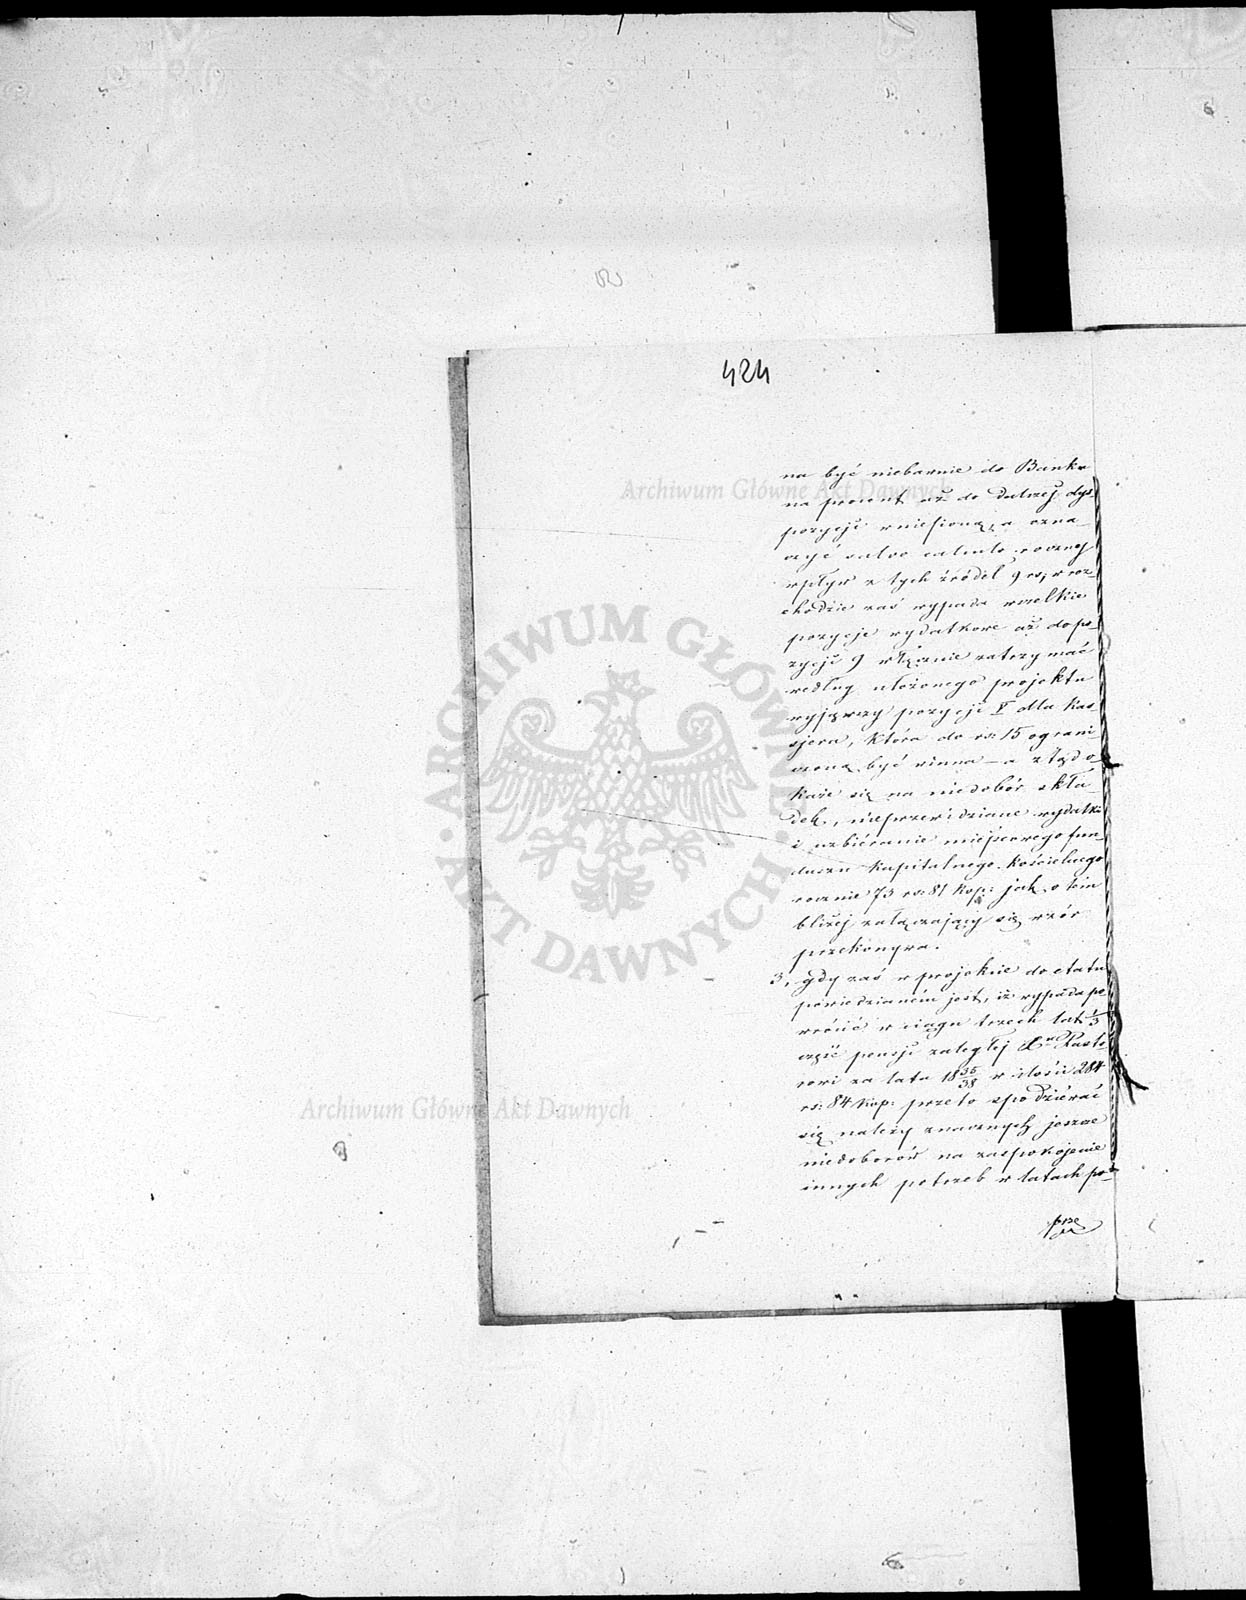 424
na być niebawnie do Banku
na procent aż do dalszej dys-
pozycji wniesioną, a ozna-
czyć salvo calculo roczny
wpływ z tych źródeł 9 rs; w roz-
chodzie zaś wypada wszelkie
pozycje wydatkowe aż do po-
zycji 9 włącznie zatrzymać
według ułożonego projektu
wyjąwszy pozycji V dla Kas-
sjera, która do rs: 15 ograni-
czoną być winna — a ztąd o-
każe się na niedobór skła-
dek, nieprzewidziane wydatki
i uzbiéranie miejscowego fun-
duszu Kapitalnego Kościelnego
rocznie 73 rs: 81 Kop: jak o tem
bliżej załączający się wzór
przekonywa.
3, gdy zaś w projekcie do etatu
powiedzianém jest, iż wypada po-
wrócić w ciągu trzech lat 1/3
część pensji zaległej Xu Pasto-
rowi za lata 18 35/38 w ilości 284
rs: 84 Kop: przeto spodziéwać
się należy znacznych jeszcze
niedoborów na zaspokojenie
innych potrzeb w latach po-
Archiwum Główne Akt Dawnych
ARCHIWUM GŁÓWNE · AKT DAWNYCH ·
Archiwum Główne Akt Dawnych